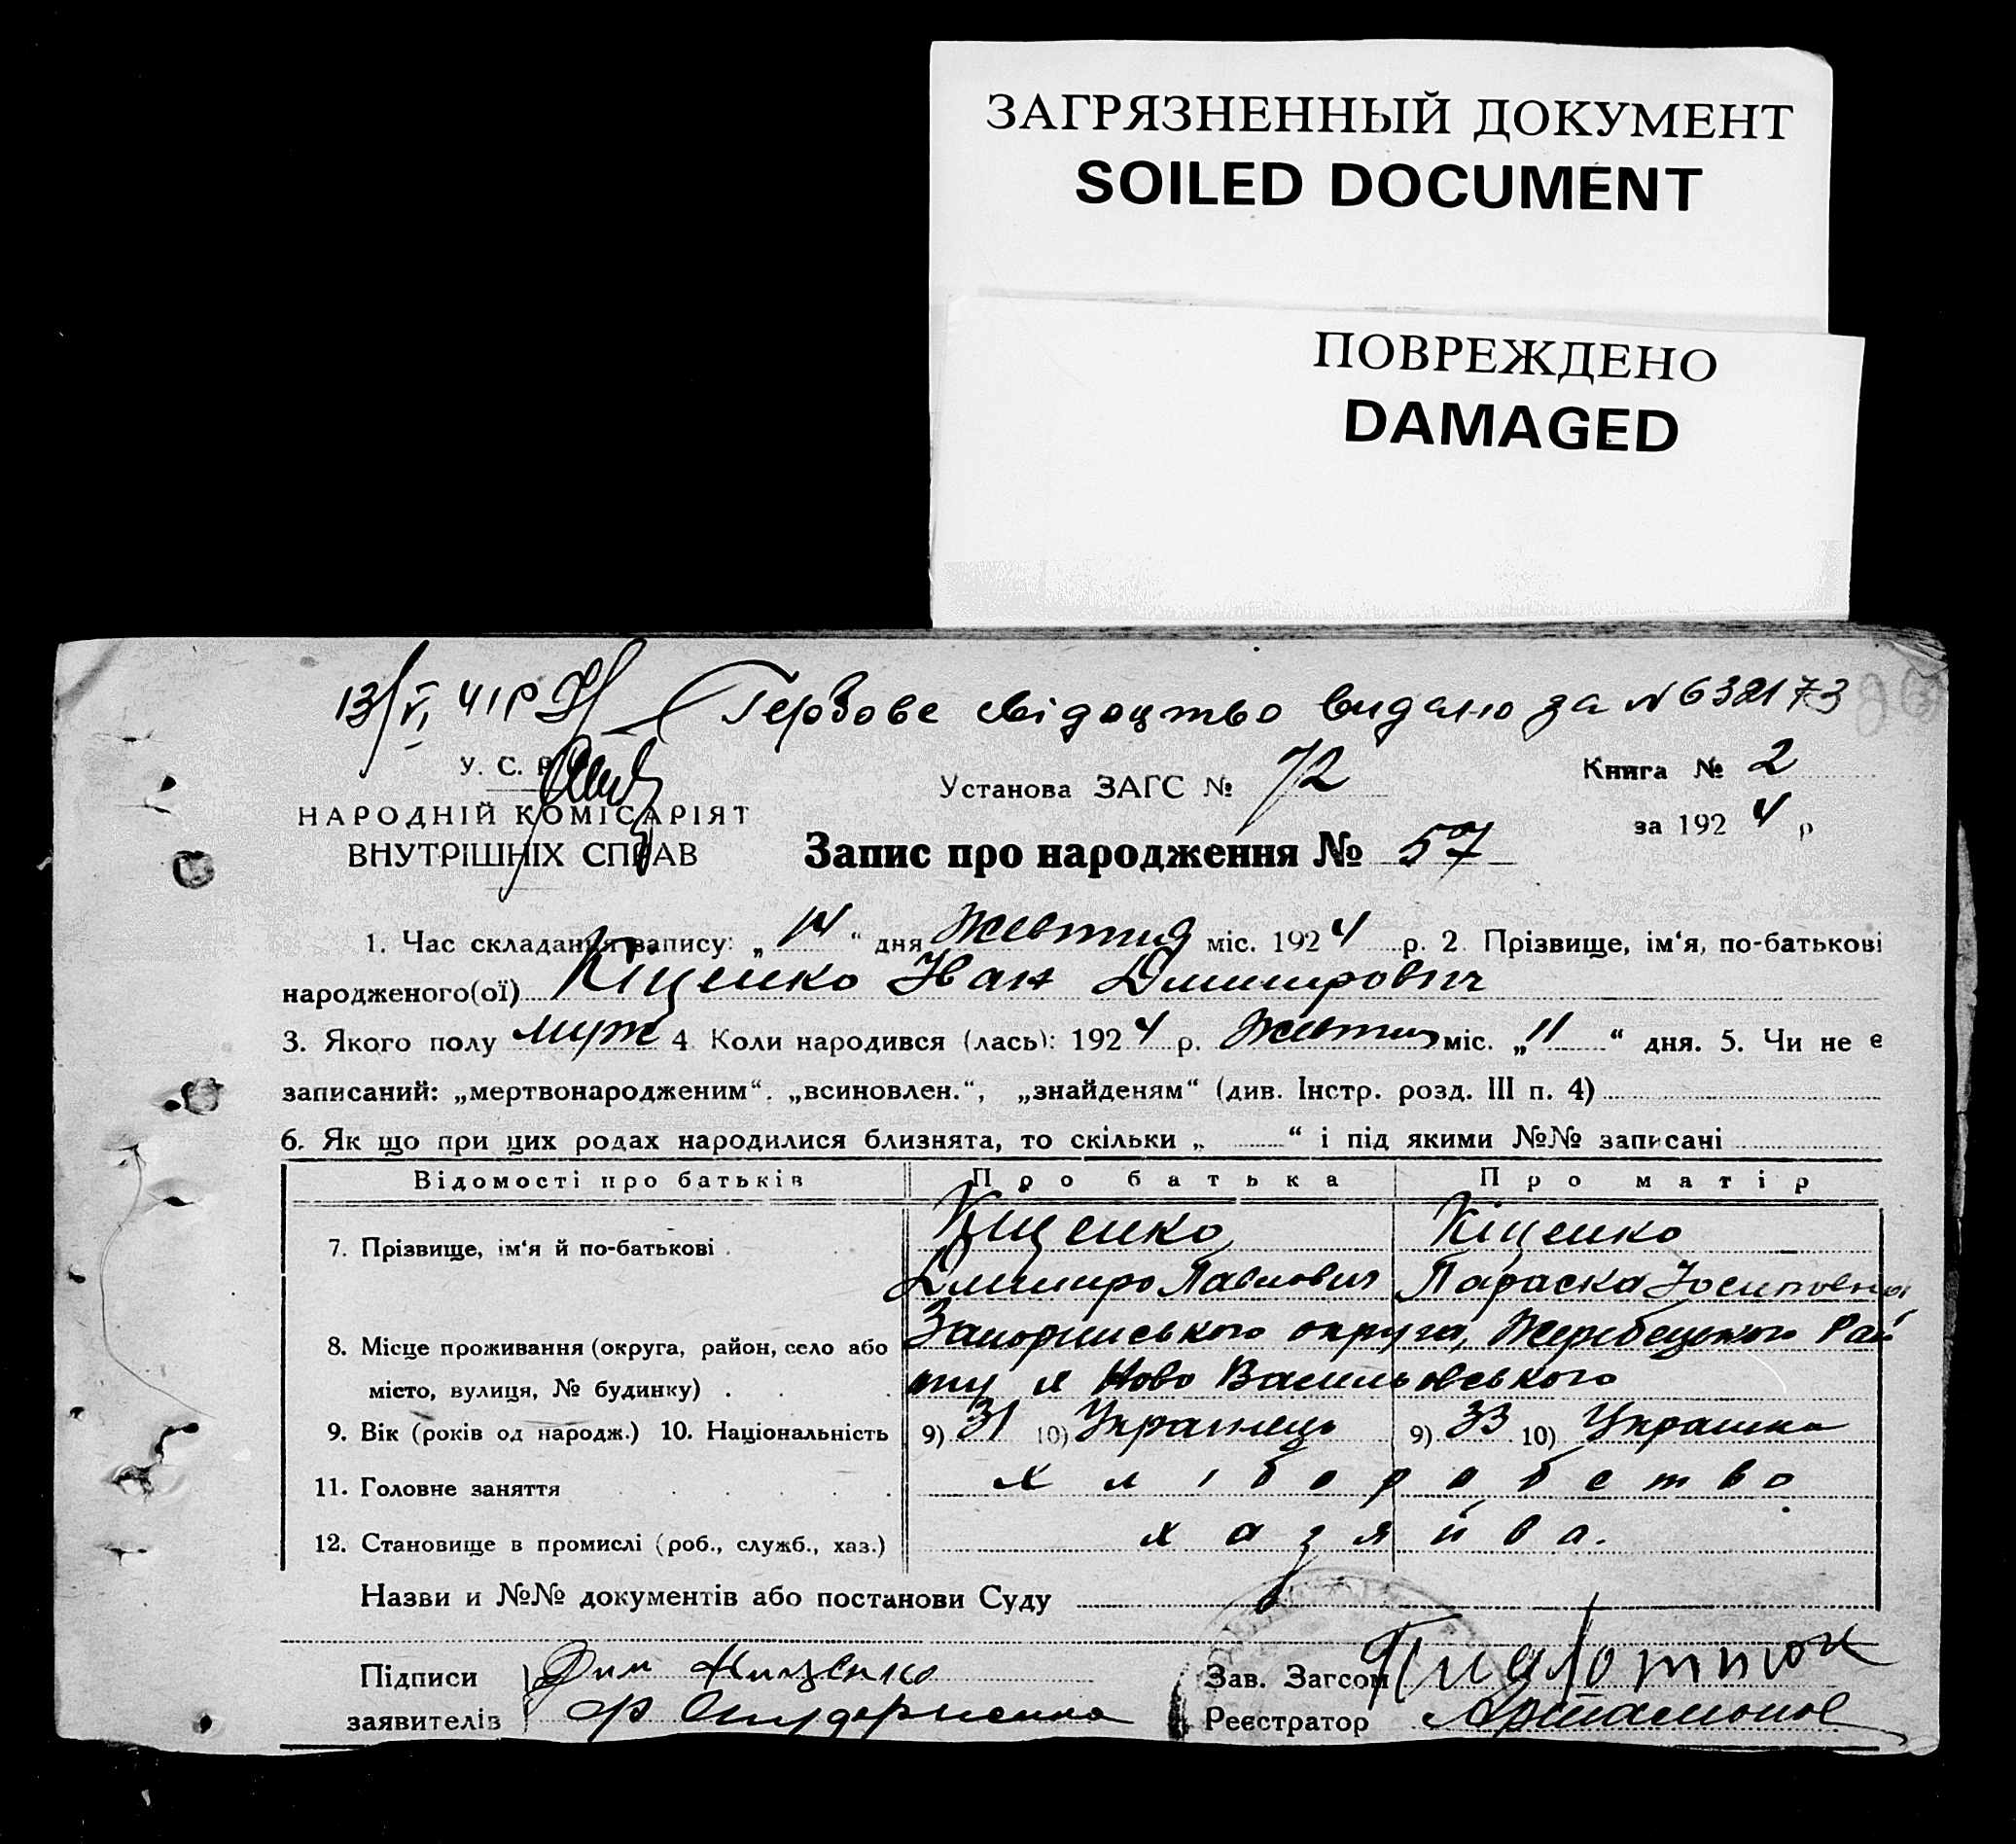 ЗАГРЯЗНЕННЫЙ ДОКУМЕНТ
SOILED DOCUMENT
ПОВРЕЖДЕНО
DAMAGED
13/V, 41 р Гербове свідоцтво видано за № 632173
У. С. Р.
НАРОДНІЙ КОМІСАРІЯТ
ВНУТРІШНІХ СПРАВ
Установа ЗАГС № 72
Книга № 2
за 1924 р
Запис про народження № 57
1. Час складання запису: „14“ дня Жовтня міс. 1924 р. 2 Прізвище, ім‘я, по-батькові
народженого(ої) Кіценко Іван Дмитрович
3. Якого полу муж 4. Коли народився (лась): 1924 р. Жовтня міс. „11“ дня. 5. Чи не є
записаний: „мертвонародженим“. „всиновлен.“, „знайденям“ (див. Інстр. розд. III п. 4)
6. Як що при цих родах народилися близнята, то скільки „ “ і під якими №№ записані
Відомості про батьків Про батька Про матір
7. Прізвище, ім‘я й по-батькові Кіценко Кіценко
Дмитро Павлович Параска Йосиповна
8. Місце проживання (округа, район, село або Запоріжського округа, Жеребецького Рай
місто, вулиця, № будинку) ону Ново Васильовського
9. Вік (років од народж.) 10. Національність 9) 31 10) Українець 9) 33 10) Українка
11. Головне заняття хліборобство
12. Становище в промислі (роб., служб., хаз.) хазяйва.
Назви и №№ документів або постанови Суду
Підписи Дим Кицэнко Зав. Загсом
заявителів Реєстратор Артамонов